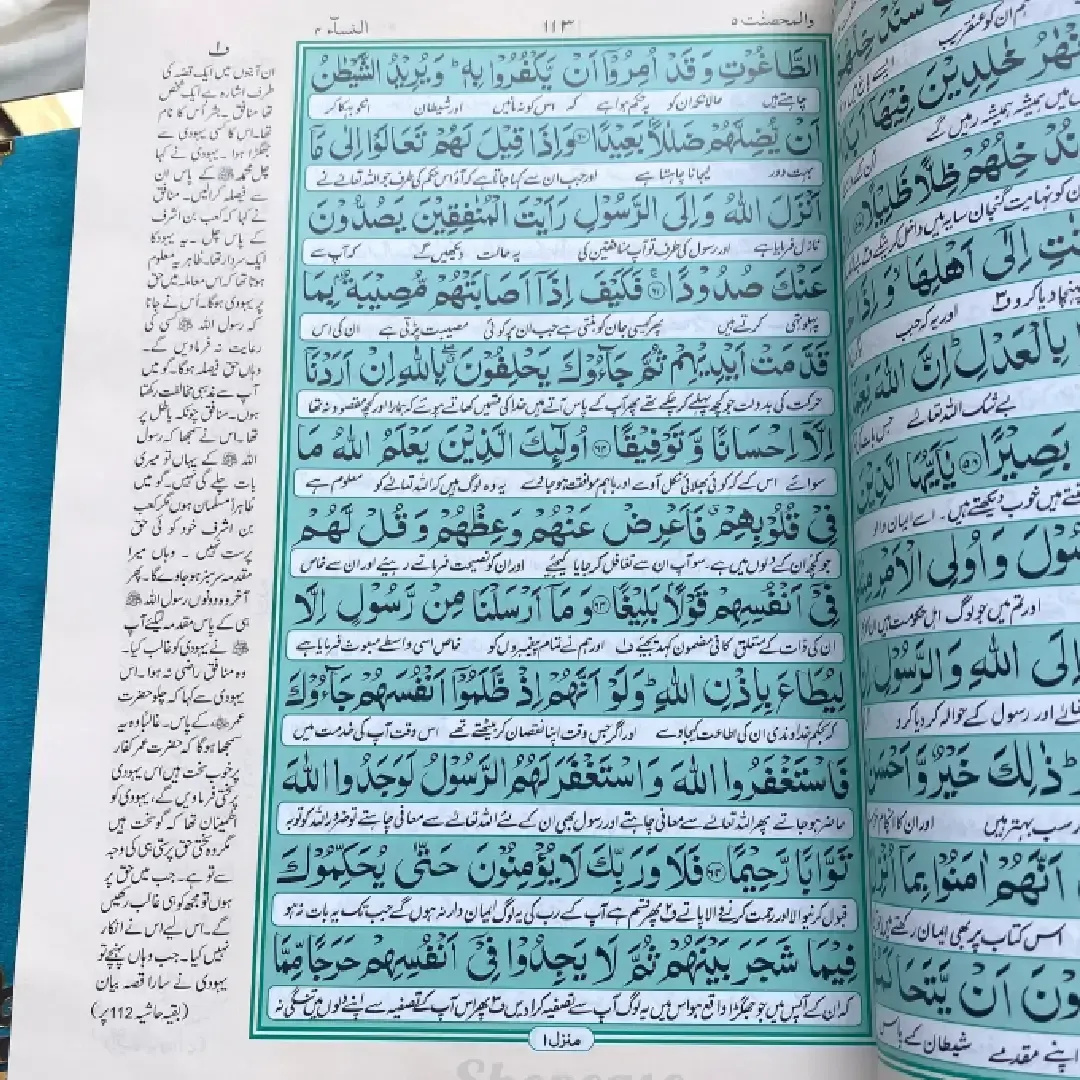 والمحصنت ۵
۱۱۳
النسآء ۴
الطَّاغُوۡتِ وَ قَدۡ اُمِرُوۡۤا اَنۡ یَّكۡفُرُوۡا بِهٖ ؕ وَ یُرِیۡدُ الشَّیۡطٰنُ
چاہتے ہیں حالانکہ ان کو یہ حکم ہوا ہے کہ اس کو نہ مانیں اور شیطان انکو بہکا کر
اَنۡ یُّضِلَّهُمۡ ضَلٰلًۢا بَعِیۡدًا ﴿۶۰﴾ وَ اِذَا قِیۡلَ لَهُمۡ تَعَالَوۡا اِلٰی مَاۤ
بہت دور لیجانا چاہتا ہے اور جب ان سے کہا جاتا ہے کہ آؤ اس حکم کی طرف جو اللہ تعالےٰ نے
اَنۡزَلَ اللّٰهُ وَ اِلَی الرَّسُوۡلِ رَاَیۡتَ الۡمُنٰفِقِیۡنَ یَصُدُّوۡنَ
نازل فرمایا ہے اور رسول کی طرف تو آپ منافقین کی یہ حالت دیکھیں گے کہ آپ سے
عَنۡكَ صُدُوۡدًا ﴿۶۱﴾ فَكَیۡفَ اِذَاۤ اَصَابَتۡهُمۡ مُّصِیۡبَةٌۢ بِمَا
پہلو تہی کرتے ہیں پھر کیسی جان کو بنتی ہے جب ان پر کوئی مصیبت پڑتی ہے ان کی اس
قَدَّمَتۡ اَیۡدِیۡهِمۡ ثُمَّ جَآءُوۡكَ یَحۡلِفُوۡنَ بِاللّٰهِ اِنۡ اَرَدۡنَاۤ
حرکت کی بدولت جو کچھ پہلے کر چکے تھے پھر آپ کے پاس آتے ہیں خدا کی قسمیں کھاتے ہوئے کہ ہمارا اور کچھ مقصود نہ تھا
اِلَّاۤ اِحۡسَانًا وَّ تَوۡفِیۡقًا ﴿۶۲﴾ اُولٰٓئِكَ الَّذِیۡنَ یَعۡلَمُ اللّٰهُ مَا
سوائے اس کے کہ کوئی بھلائی نکل آوے اور باہم موافقت ہو جائے یہ وہ لوگ ہیں کہ اللہ تعالےٰ کو معلوم ہے
فِیۡ قُلُوۡبِهِمۡ ٭ فَاَعۡرِضۡ عَنۡهُمۡ وَ عِظۡهُمۡ وَ قُلۡ لَّهُمۡ
جو کچھ ان کے دلوں میں ہے۔ سو آپ ان سے تغافل کر جایا کیجئے اور ان کو نصیحت فرماتے رہیئے اور ان سے خاص
فِیۡۤ اَنۡفُسِهِمۡ قَوۡلًۢا بَلِیۡغًا ﴿۶۳﴾ وَ مَاۤ اَرۡسَلۡنَا مِنۡ رَّسُوۡلٍ اِلَّا
ان کی ذات کے متعلق کافی مضمون کہہ دیجئے ف اور ہم نے تمام پیغمبروں کو خاص اسی واسطے مبعوث فرمایا ہے
لِیُطَاعَ بِاِذۡنِ اللّٰهِ ؕ وَ لَوۡ اَنَّهُمۡ اِذۡ ظَّلَمُوۡۤا اَنۡفُسَهُمۡ جَآءُوۡكَ
کہ بحکم خداوندی ان کی اطاعت کیجاوے اور اگر جس وقت اپنا نقصان کر بیٹھتے تھے اس وقت آپ کی خدمت میں
فَاسۡتَغۡفَرُوا اللّٰهَ وَ اسۡتَغۡفَرَ لَهُمُ الرَّسُوۡلُ لَوَجَدُوا اللّٰهَ
حاضر ہو جاتے پھر اللہ تعالےٰ سے معافی چاہتے اور رسول بھی ان کے لئے اللہ تعالےٰ سے معافی چاہتے تو ضرور اللہ کو توبہ
تَوَّابًا رَّحِیۡمًا ﴿۶۴﴾ فَلَا وَ رَبِّكَ لَا یُؤۡمِنُوۡنَ حَتّٰی یُحَكِّمُوۡكَ
قبول کرنیوالا اور رحمت کرنے والا پاتے ف۲ پھر قسم ہے آپ کے رب کی یہ لوگ ایمان دار نہ ہوں گے جب تک یہ بات نہ ہو
فِیۡمَا شَجَرَ بَیۡنَهُمۡ ثُمَّ لَا یَجِدُوۡا فِیۡۤ اَنۡفُسِهِمۡ حَرَجًا مِّمَّا
کہ ان کے آپس میں جو جھگڑا واقع ہو اس میں یہ لوگ آپ سے تصفیہ کرا دیں ف۳ پھر اس آپ کے تصفیہ سے اپنے دلوں میں تنگی نہ
منزل ۱
ف۱
ان آیتوں میں ایک قصہ کی
طرف اشارہ ہے ایک شخص
تھا منافق یہ بشر اُس کا نام
تھا۔ اس کا کسی یہودی سے
جھگڑا ہوا۔ یہودی نے کہا
چل محمد ﷺ کے پاس ان
سے فیصلہ کرالیں۔ منافق
نے کہا کہ کعب بن اشرف
کے پاس چل۔ یہ یہود کا
ایک سردار تھا۔ ظاہر یہ معلوم
ہوتا تھا کہ اس معاملہ میں حق
پر یہودی ہوگا۔ اُس نے جانا
کہ رسول اللہ ﷺ کسی کی
رعایت نہ فرماویں گے۔
وہاں حق فیصلہ ہوگا۔ گو میں
آپ سے مذہبی مخالفت رکھتا
ہوں۔ منافق چونکہ باطل پر
تھا۔ اس نے سمجھا کہ رسول
اللہ ﷺ کے یہاں تو میری
بات چلے گی نہیں۔ گو میں
ظاہرا مسلمان ہوں مگر کعب
بن اشرف خود کوئی حق
پرست نہیں۔ وہاں میرا
مقدمہ سرسبز ہو جاوے گا۔ پھر
آخر وہ دونوں رسول اللہ ﷺ
ہی کے پاس مقدمہ لیکئے آپ
ﷺ نے یہودی کو غالب کیا۔
وہ منافق راضی نہ ہوا۔ اس
یہودی سے کہا کہ چلو حضرت
عمر کے پاس۔ غالباً وہ یہ
سمجھا ہوگا کہ حضرت عمر کفار
پر خوب سخت ہیں اس یہودی
پر سختی فرماویں گے، یہودی کو
اطمینان تھا کہ گو سخت ہیں
مگر وہ سختی حق پرستی ہی کی وجہ
سے تو ہے۔ جب میں حق پر
ہوں تو مجھ کو ہی غالب رکھیں
گے۔ اس لیے اس نے انکار
نہیں کیا۔ جب وہاں پہنچے تو
یہودی نے سارا قصہ بیان
(بقیہ حاشیہ 112 پر)
سَنُدۡخِلُهُمۡ
ہم ان کو عنقریب
خٰلِدِیۡنَ فِیۡهَاۤ
میں ہمیشہ ہمیشہ رہیں گے
خِلُهُمۡ ظِلًّا ظَلِیۡلًا
ان کو نہایت گنجان سایہ میں داخل کریں گے
اِلٰۤی اَهۡلِهَا ۙ وَ اِذَا
پہنچا دیا کرو ف۳ اور یہ کہ جب
بِالۡعَدۡلِ ؕ اِنَّ اللّٰهَ
بے شک اللہ تعالےٰ جس بات
بَصِیۡرًا ﴿۵۸﴾ یٰۤاَیُّهَا الَّذِیۡنَ
خوب دیکھتے ہیں۔ اے ایمان والو
وَ اُولِی الۡاَمۡرِ
اور تم میں جو لوگ اہل حکومت ہیں
اِلَی اللّٰهِ وَ الرَّسُوۡلِ
اور رسول کے حوالہ کر دیا کرو
ذٰلِكَ خَیۡرٌ وَّ اَحۡسَنُ
سب بہتر ہیں اور ان کا انجام
اَنَّهُمۡ اٰمَنُوۡا بِمَاۤ
اس کتاب پر بھی ایمان رکھتے ہیں
اَنۡ یَّتَحَاكَمُوۡۤا
اپنے مقدمے شیطان کے پاس